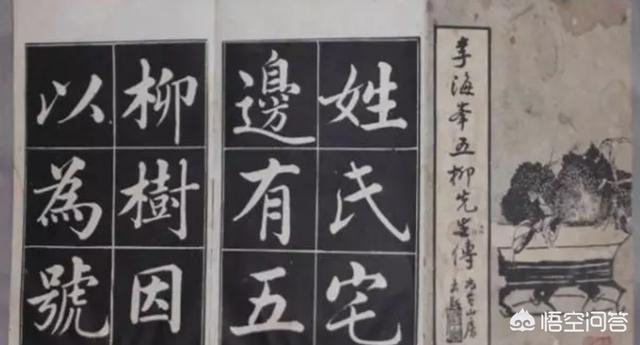 李海峯五柳先生傳
尚古山房
姓氏宅
邊有五
柳樹因
以為號
悟空问答